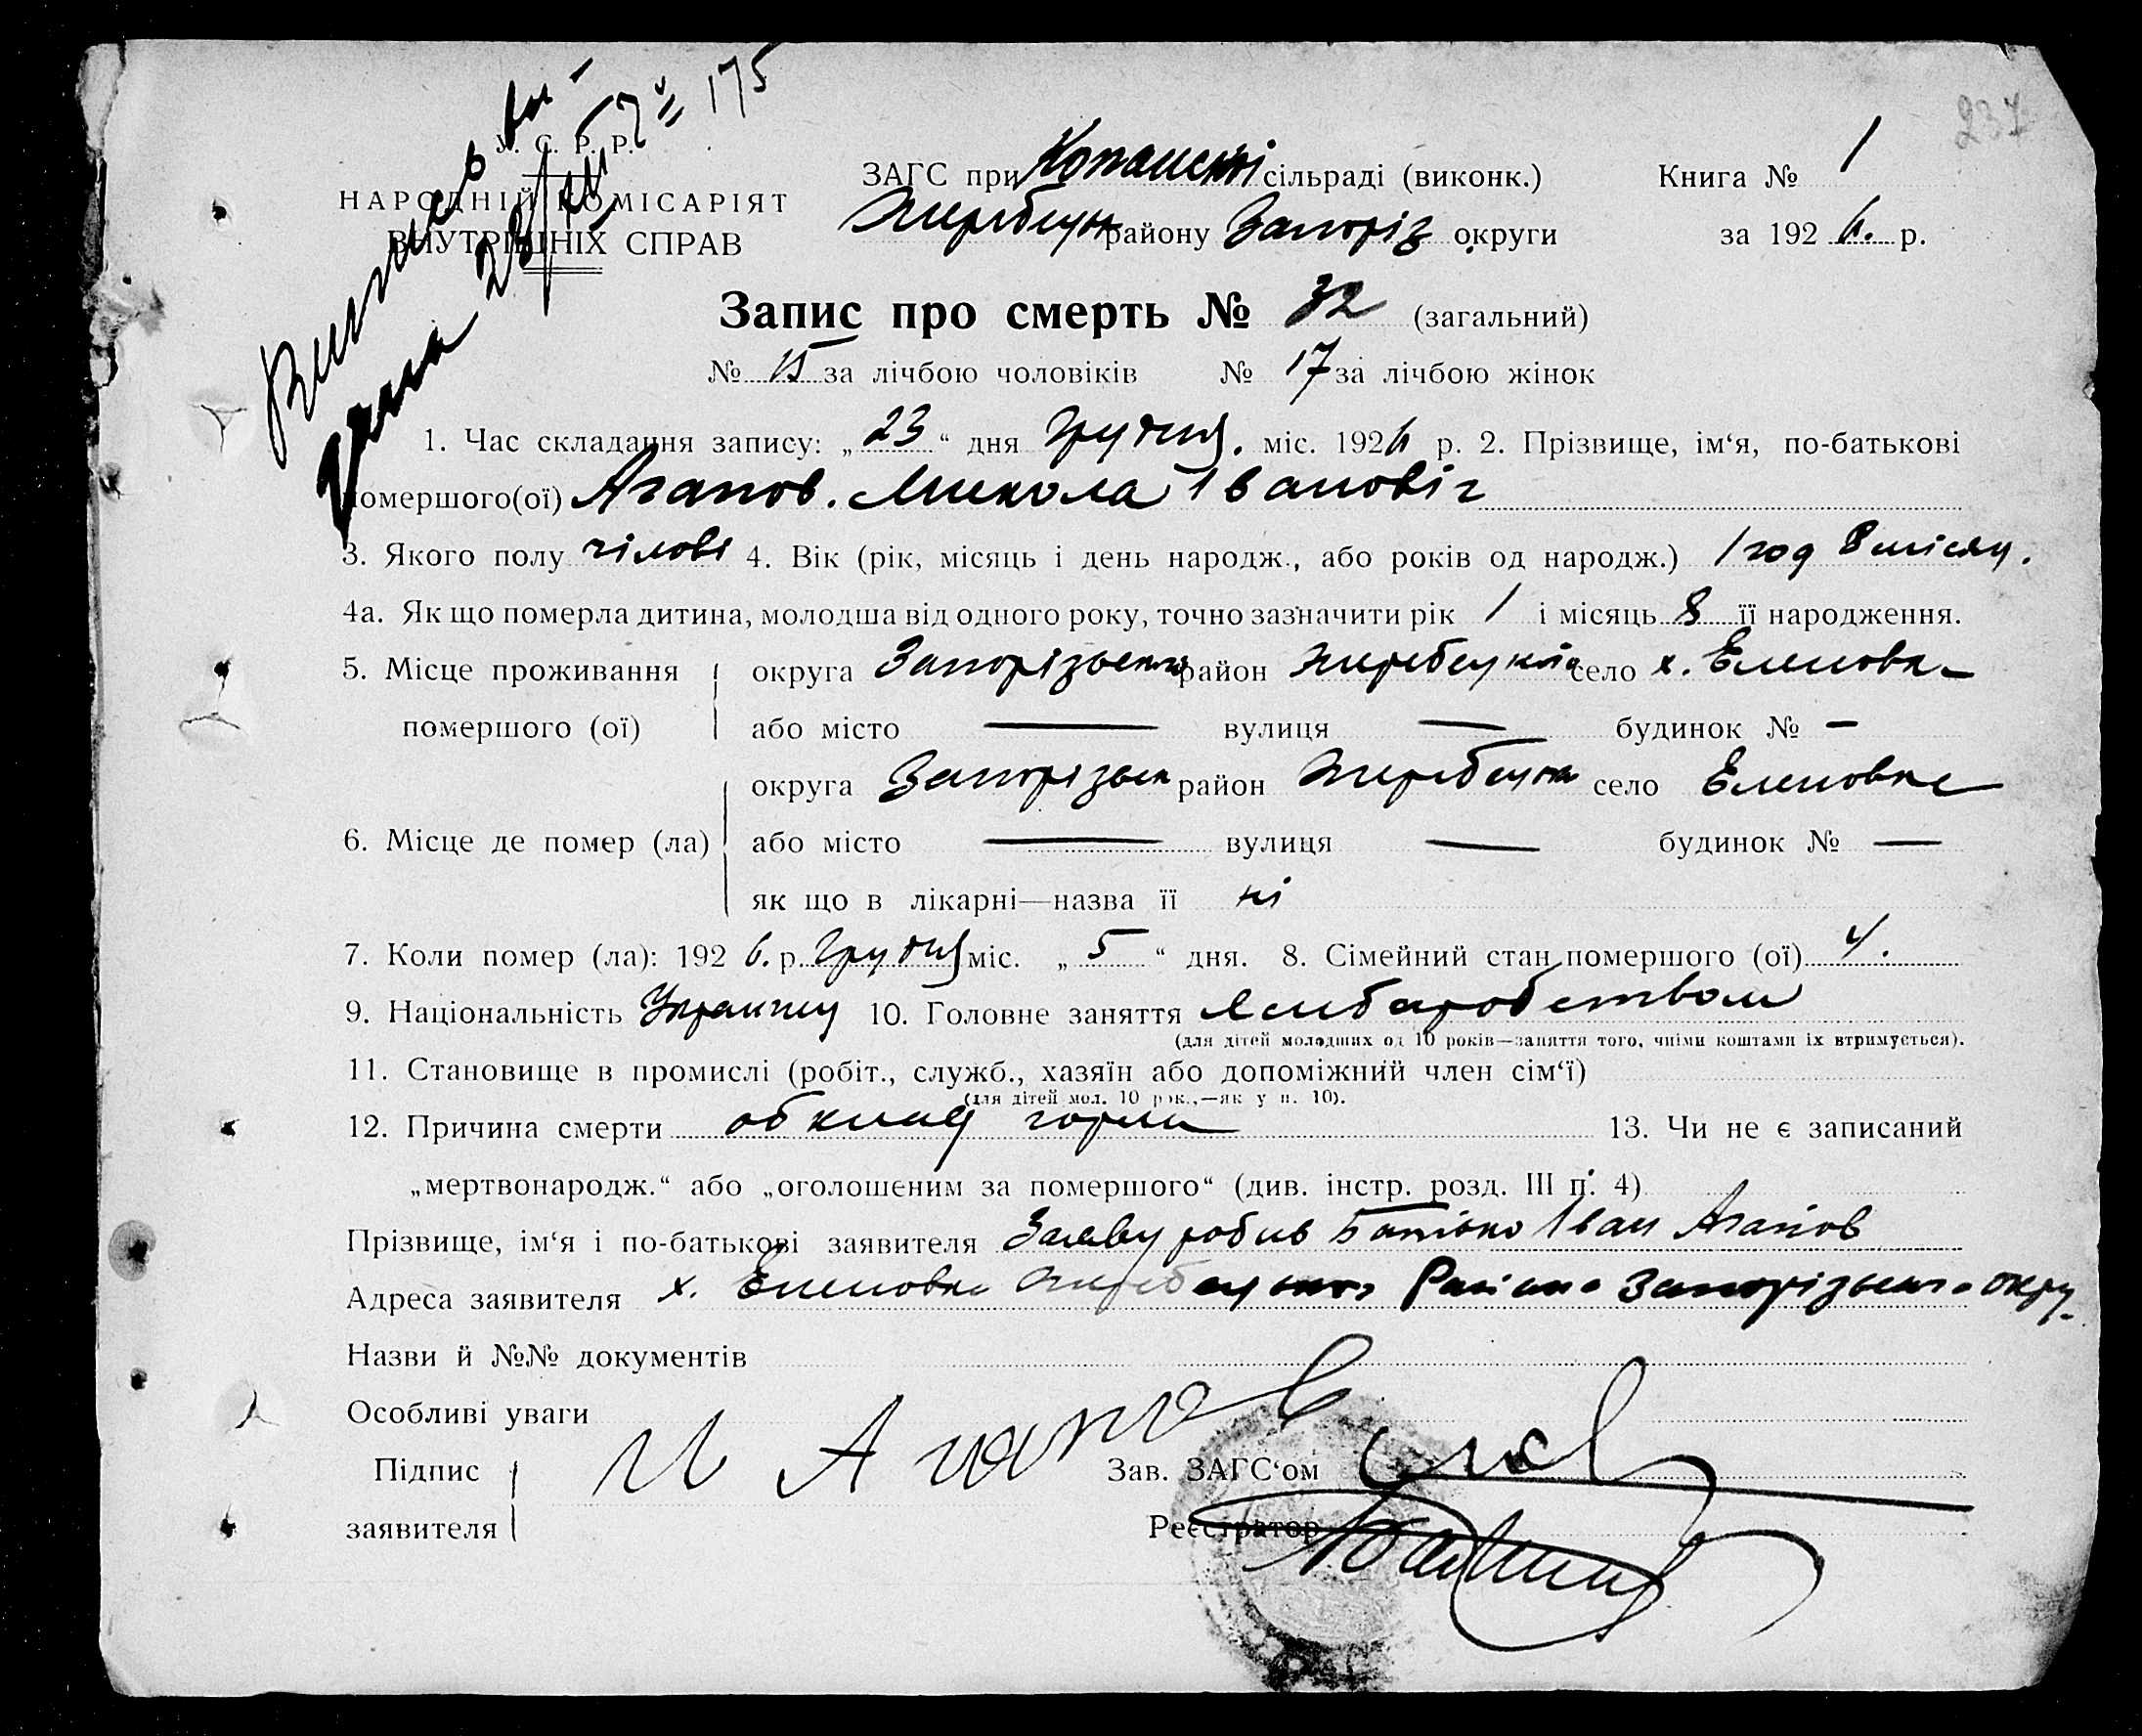 237
175
У. С. Р. Р.
НАРОДНІЙ КОМІСАРІЯТ
ВНУТРІШНІХ СПРАВ
ЗАГС при Копанській сільраді (виконк.) Книга № 1
Жеребецьк району Запоріз округи за 1926. р.
Запис про смерть № 32 (загальний)
№ 15 за лічбою чоловіків № 17 за лічбою жінок
1. Час складання запису: „23“ дня Грудня. міс. 1926 р. 2. Прізвище, ім‘я, по-батькові
помершого(ої) Агапов. Микола Івановіч
3. Якого полу чілові 4. Вік (рік, місяць і день народж., або років од народж.) 1 год 8 місяц.
4а. Як що померла дитина, молодша від одного року, точно зазначити рік 1 і місяць 8 її народження.
5. Місце проживання округа Запорізьська район Жеребецька село х. Еленовка
помершого (ої) або місто — вулиця — будинок № —
округа Запорізьск район Жеребецька село Еленовке
6. Місце де помер (ла) або місто — вулиця — будинок № —
як що в лікарні—назва її ні
7. Коли помер (ла): 1926. р. Грудня міс. „5“ дня. 8. Сімейний стан помершого (ої) 4.
9. Національність Украинец 10. Головне заняття
(для дітей молодших од 10 років—заняття того, чиїми коштами їх втримується).
11. Становище в промислі (робіт., служб., хазяїн або допоміжний член сім‘ї)
(для дітей мол. 10 рок.,—як у п. 10).
12. Причина смерти обклад горла 13. Чи не є записаний
„мертвонародж.“ або „оголошеним за помершого“ (див. інстр. розд. III п. 4)
Прізвище, ім‘я і по-батькові заявителя Заяву робив Батько Іван Агапов
Адреса заявителя х. Еленовка Жеребецького Району Запорізького окру
Назви й №№ документів
Особливі уваги
Підпис И Агапов Зав. ЗАГС‘ом
заявителя Реєстратор